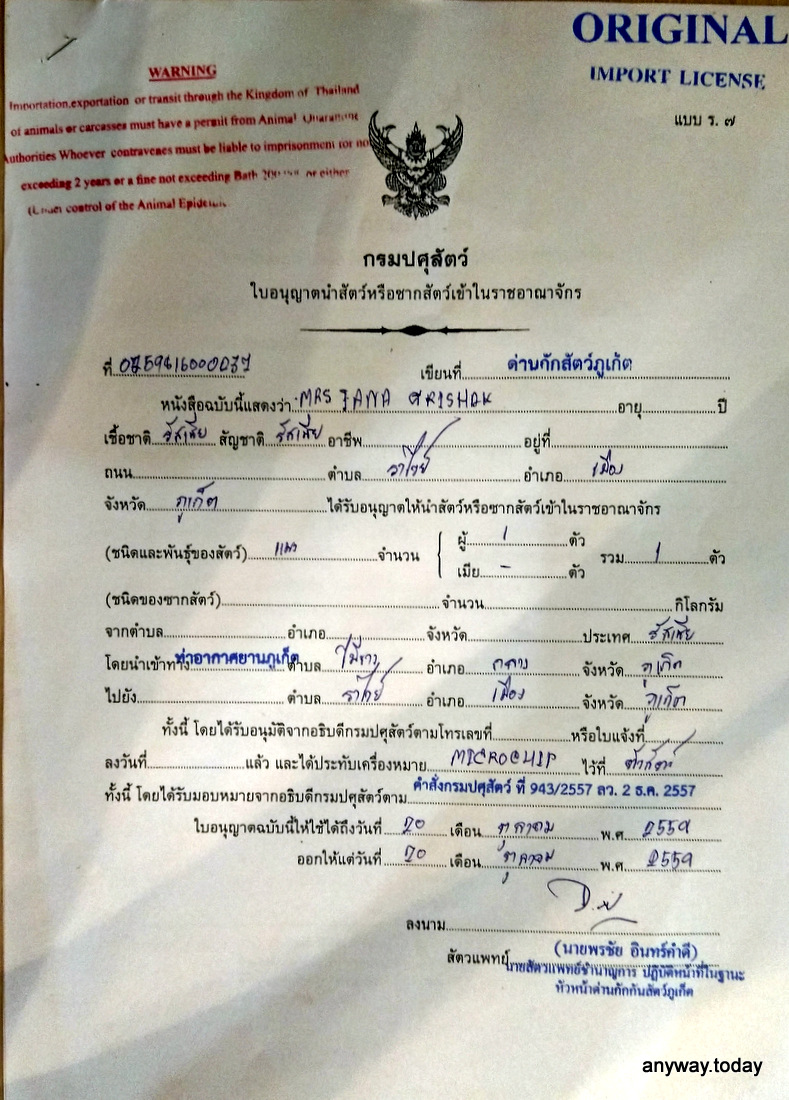 ORIGINAL
IMPORT LICENSE
แบบ ร. ๗
WARNING
Importation,exportation or transit through the Kingdom of Thailand
of animals or carcasses must have a permit from Animal Quarantine
Authorities Whoever contravenes must be liable to imprisonment for not
exceeding 2 years or a fine not exceeding Bath or either
(Under control of the Animal
กรมปศุสัตว์
ใบอนุญาตนำสัตว์หรือซากสัตว์เข้าในราชอาณาจักร
ที่ เขียนที่ ด่านกักสัตว์ภูเก็ต
หนังสือฉบับนี้แสดงว่า MRS อายุ ปี
เชื้อชาติ รัสเซีย สัญชาติ รัสเซีย อาชีพ อยู่ที่
ถนน ตำบล ราไวย์ อำเภอ เมือง
จังหวัด ภูเก็ต ได้รับอนุญาตให้นำสัตว์หรือซากสัตว์เข้าในราชอาณาจักร
(ชนิดและพันธุ์ของสัตว์) แมว จำนวน ผู้ 1 ตัว รวม 1 ตัว
เมีย - ตัว
(ชนิดของซากสัตว์) จำนวน กิโลกรัม
จากตำบล อำเภอ จังหวัด ประเทศ รัสเซีย
โดยนำเข้าทาง ท่าอากาศยานภูเก็ต ตำบล ไม้ขาว อำเภอ ถลาง จังหวัด ภูเก็ต
ไปยัง ตำบล ราไวย์ อำเภอ เมือง จังหวัด ภูเก็ต
ทั้งนี้ โดยได้รับอนุมัติจากอธิบดีกรมปศุสัตว์ตามโทรเลขที่ หรือใบแจ้งที่
ลงวันที่ แล้ว และได้ประทับเครื่องหมาย MICROCHIP ไว้ที่ ตัวสัตว์
ทั้งนี้ โดยได้รับมอบหมายจากอธิบดีกรมปศุสัตว์ตาม คำสั่งกรมปศุสัตว์ ที่ 943/2557 ลว. 2 ธ.ค. 2557
ใบอนุญาตฉบับนี้ให้ใช้ได้ถึงวันที่ 20 เดือน ตุลาคม พ.ศ 2559
ออกให้แต่วันที่ 20 เดือน ตุลาคม พ.ศ. 2559
ลงนาม
(นายพรชัย อินทร์คำดี)
สัตวแพทย์ นายสัตวแพทย์ชำนาญการ ปฏิบัติหน้าที่ในฐานะ
หัวหน้าด่านกักกันสัตว์ภูเก็ต
anyway.today